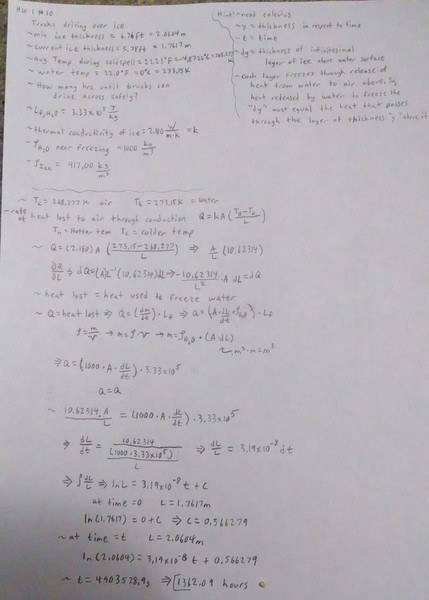 HW 1 #10
Trucks driving over ice
~min ice thickness = 6.76ft = 2.0604m
~current ice thickness = 5.78ft = 1.7617m
~avg Temp during cold spell = 23.23°F =
~water temp = 32.0°F = 0°C = 273.15K
~How many hrs until trucks can
drive across safely?
~Lf,H2O = 3.33x10⁵ J/kg
~thermal conductivity of ice = 2.180 W/m·K = k
~ρH2O near freezing = 1000 kg/m³
~ρIce = 917.00 kg/m³
Hint: ~need calculus
~y = thickness in respect to time
~t = time
~dy = thickness of infinitesimal
layer of ice above water surface
~each layer freezes through release of
heat from water to air above, so
heat released by water to freeze the
"dy" must equal the heat that passes
through the layer of thickness "y" above it
~Tc = 268.277K air Th = 273.15K = water
~rate of heat lost to air through conduction Q = kA(TH-Tc/L)
TH = Hotter tem Tc = colder temp
~ Q = (2.180)A(273.15-268.277/L) ⇒ A/L (10.62314)
∂Q/∂L ⇒ dQ = (A)L⁻¹(10.62314)dL ⇒ -10.62314/L² · A dL = dQ
~heat lost = heat used to freeze water
~Q = heat lost ⇒ Q = (dm/dt) · Lf ⇒ Q = (A·dL/dt · ρH2O) · Lf
ρ = m/V → m = ρ·V → m = ρH2O · (A·dL)
m²·m = m³
⇒ Q = (1000 · A · dL/dt) · 3.33x10⁵
Q = Q
~ 10.62314·A/L = (1000 · A · dL/dt) · 3.33x10⁵
⇒ dL/dt = 10.62314/(1000·3.33x10⁵)/L ⇒ dL/L = 3.19x10⁻⁸ dt
⇒ ∫dL/L ⇒ lnL = 3.19x10⁻⁸ t + C
at time = 0 L = 1.7617m
ln(1.7617) = 0 + C ⇒ C = 0.566279
~at time = t L = 2.0604m
ln(2.0604) = 3.19x10⁻⁸ t + 0.566279
~ t = 4903528.9s ⇒ 1362.09 hours